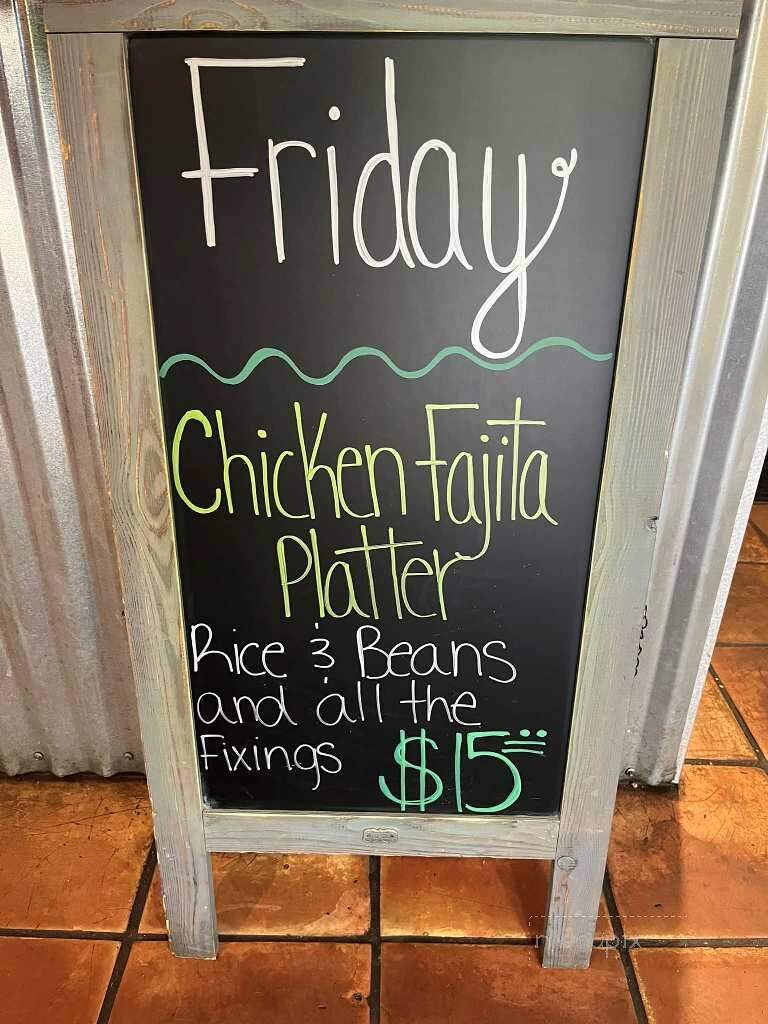 Friday
Chicken Fajita
Platter
Rice & Beans
and all the
Fixings $15